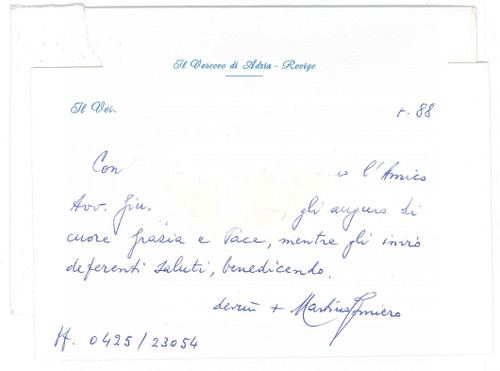 Il Vescovo di Adria - Rovigo
Il Ves.
88
Con l'Amico
Avv. Giu. gli auguro di
cuore Grazia e Pace, mentre gli invio
deferenti saluti, benedicendo.
+ Martino Gomiero
tf. 0425/23054